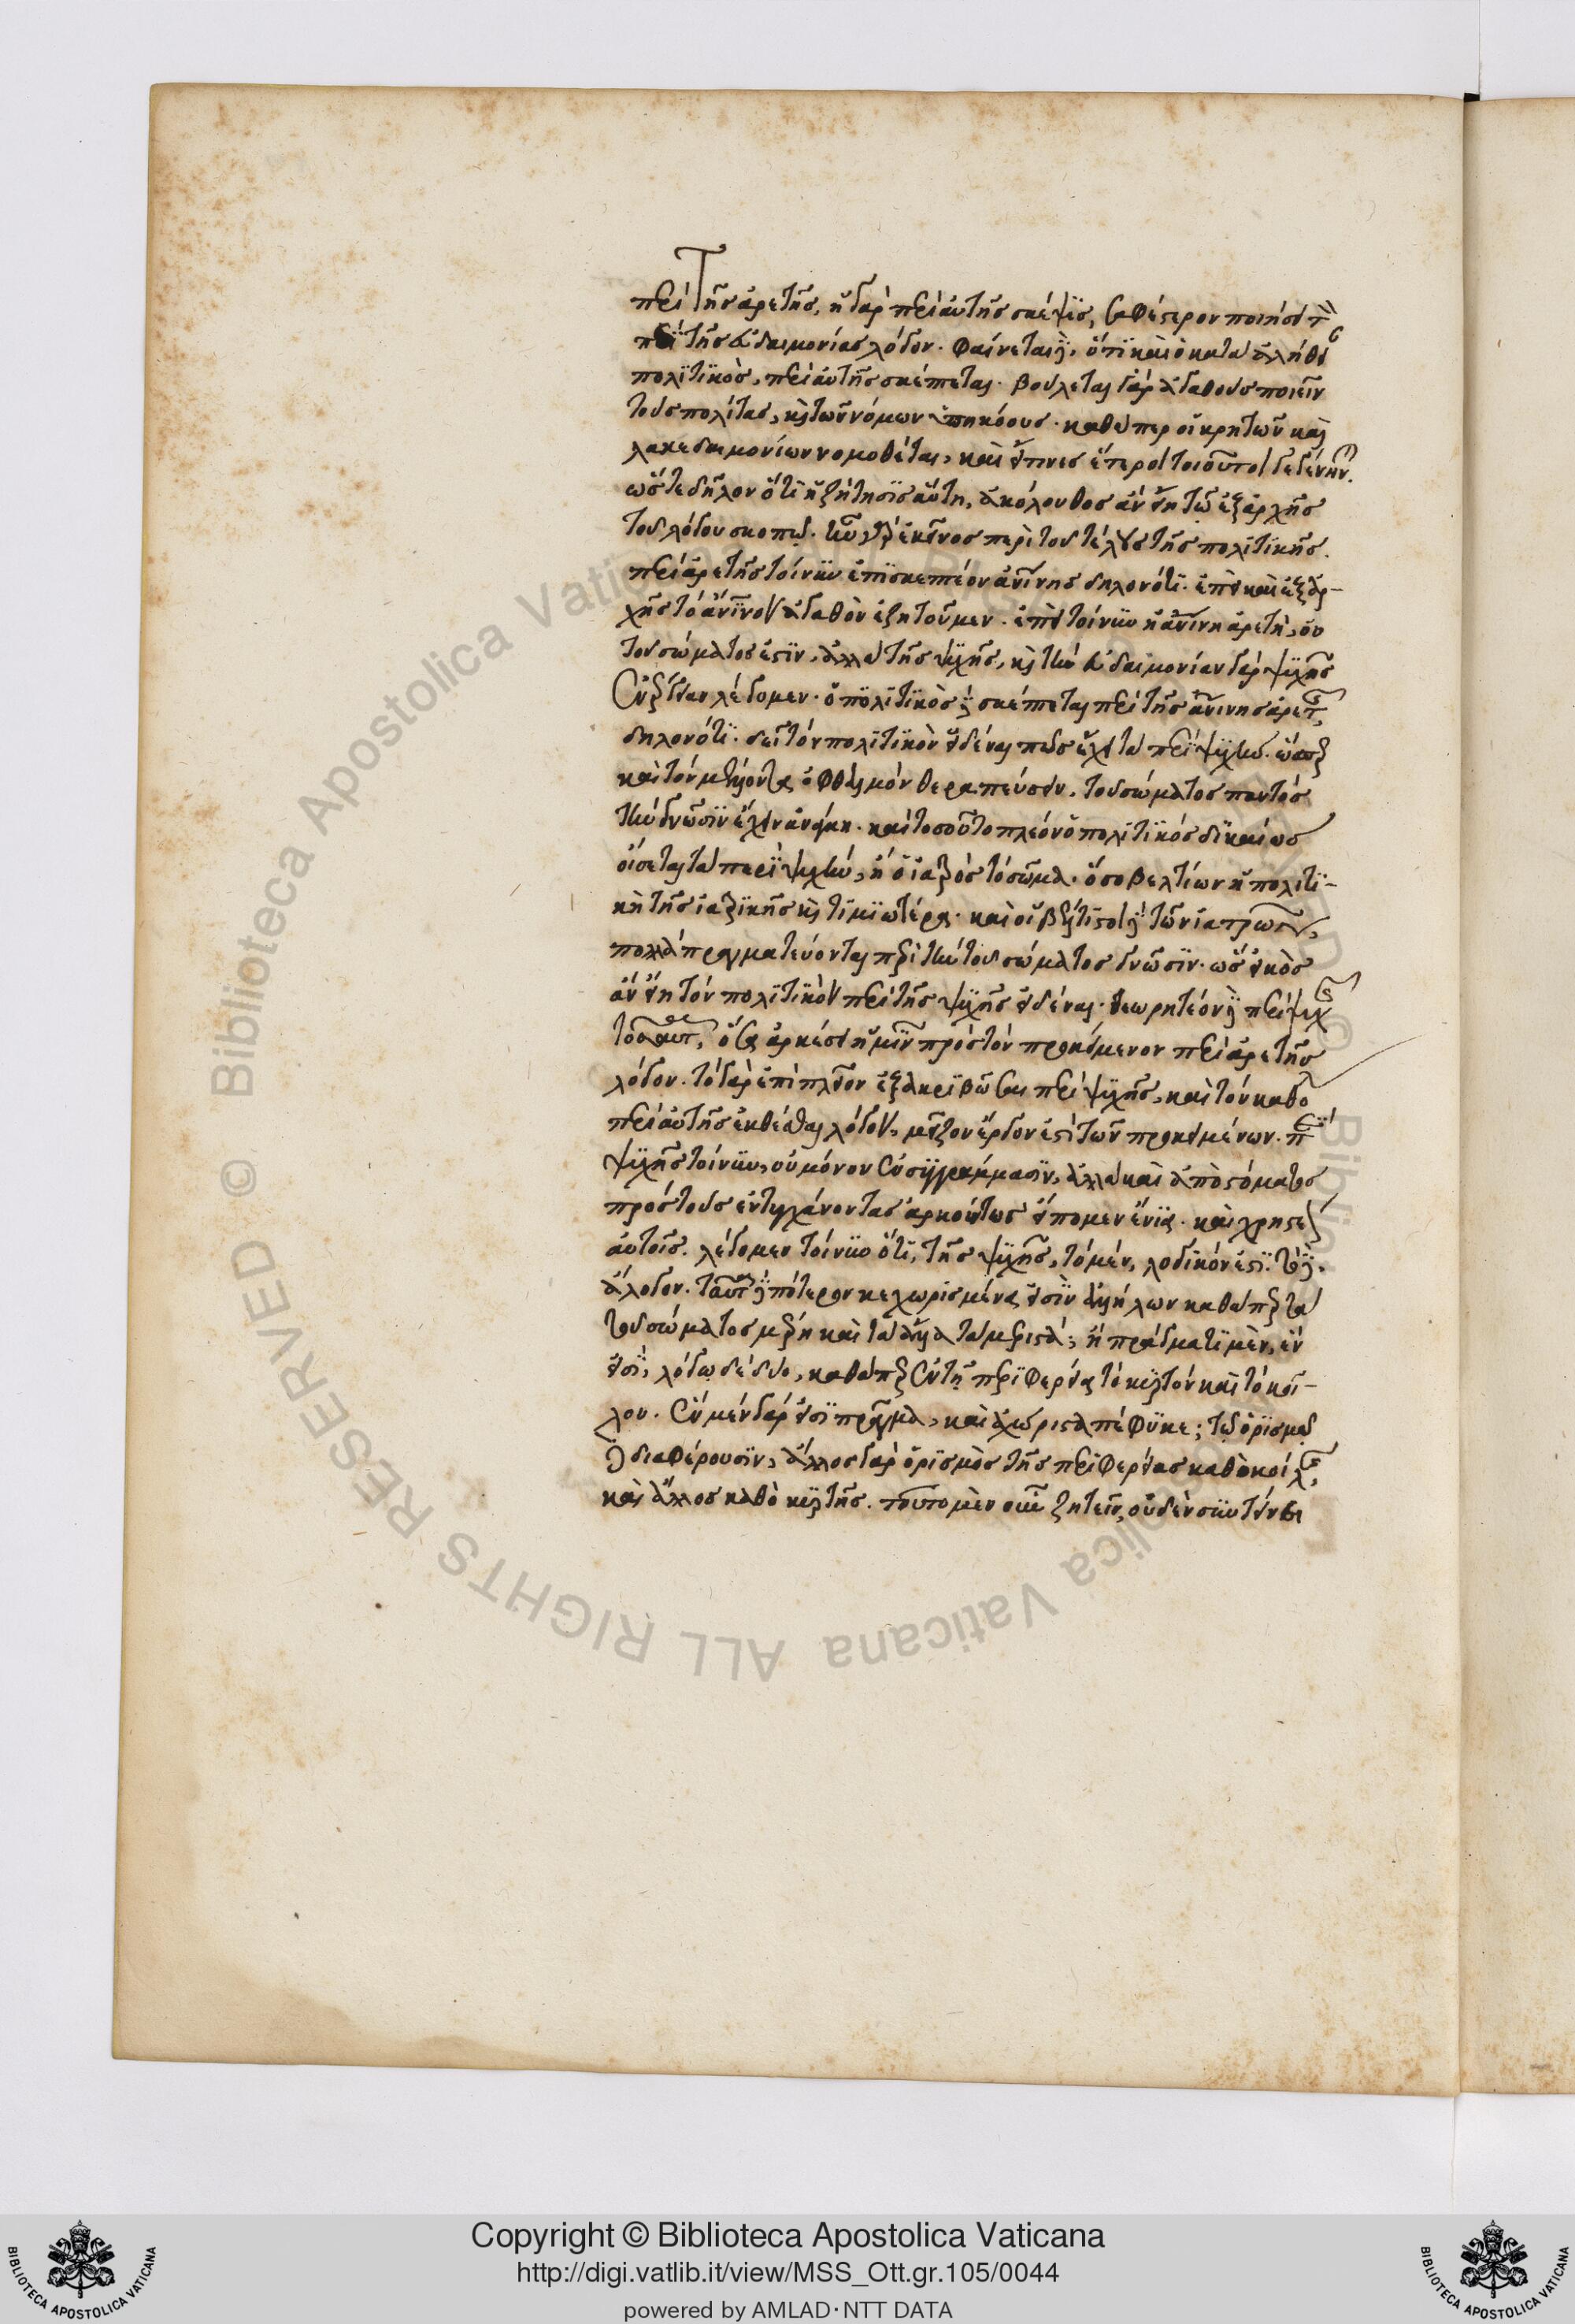 περὶ τῆς ἀρετῆς, ἡ γὰρ περὶ αὐτῆς σκέψις, σαφέστερον ποιήσει τὸν
περὶ τῆς εὐδαιμονίας λόγον. φαίνεται δὲ, ὅτι καὶ ὁ κατὰ ἀλήθειαν
πολιτικὸς, περὶ αὐτῆς σκέπεται. βούλεται γὰρ ἀγαθοὺς ποιεῖν
τοὺς πολίτας, καὶ τῶν νόμων ὑπηκόους. καθάπερ οἱ κρητῶν καὶ
λακεδαιμονίων νομοθέται, καὶ εἴ τινες ἕτεροι τοιοῦτοι γεγένηνται.
ὥστε δῆλον ὅτι ἡ ζήτησις αὕτη, ἀκόλουθος ἂν εἴη τῷ ἐξ ἀρχῆς
τοῦ λόγου σκοπῷ. ἦν γὰρ ἐκεῖνος περὶ τοῦ τέλους τῆς πολιτικῆς.
περὶ ἀρετῆς τοίνυν ἐπισκεπτέον ἀνθρωπίνης δηλονότι. ἐπεὶ καὶ ἐξ ἀρ-
χῆς τὸ ἀνθρώπινον ἀγαθὸν ἐζητοῦμεν. ἐπεὶ τοίνυν ἡ ἀνθρωπίνη ἀρετὴ, οὐ
τοῦ σώματός ἐστιν, ἀλλὰ τῆς ψυχῆς, καὶ τὴν εὐδαιμονίαν γὰρ ψυχῆς
ἐνέργειαν λέγομεν. ὁ πολιτικὸς δὲ σκέπεται περὶ τῆς ἀνθρωπίνης ἀρετῆς,
δηλονότι. δεῖ τὸν πολιτικὸν εἰδέναι πῶς ἔχει τὰ περὶ ψυχὴν. ὥσπερ
καὶ τὸν μέλλοντα ὀφθαλμὸν θεραπεύσειν, τοῦ σώματος παντὸς
τὴν γνῶσιν ἔχειν ἀνάγκη. καὶ τοσοῦτο πλέον ὁ πολιτικὸς δικαίως
οἴσεται τὰ περὶ ψυχὴν, ἢ ὁ ἰατρὸς τὸ σῶμα. ὅσο βελτίων ἡ πολιτι-
κὴ τῆς ἰατρικῆς καὶ τιμιωτέρα. καὶ οἱ βέλτιστοι δὲ τῶν ἰατρῶν,
πολλὰ πραγματεύονται περὶ τὴν τοῦ σώματος γνῶσιν. ὡς εἰκὸς
ἂν εἴη τὸν πολιτικὸν περὶ τῆς ψυχῆς εἰδέναι. θεωρητέον δὲ περὶ ψυχῆς
τοσαῦτα, ὅσα ἀρκέσει ἡμῖν πρὸς τὸν προκείμενον περὶ ἀρετῆς
λόγον. τὸ γὰρ ἐπὶ πλεῖον ἐξακριβῶσαι περὶ ψυχῆς, καὶ τὸν καθόλου
περὶ αὐτῆς ἐκθέσθαι λόγον, μεῖζον ἔργον ἐστὶ τῶν προκειμένων. περὶ
ψυχῆς τοίνυν, οὐ μόνον ἐν συγγράμμασιν, ἀλλὰ καὶ ἀπὸ στόματος
πρὸς τοὺς ἐντυγχάνοντας ἀρκούντως εἴπομεν ἔνια. καὶ χρηστέον
αὐτοῖς. λέγομεν τοίνυν ὅτι, τῆς ψυχῆς, τὸ μὲν, λογικόν ἐστι. τὸ δὲ,
ἄλογον. ταῦτα δὲ πότερον κεχωρισμένα εἰσὶν ἀλλήλων καθάπερ τὰ
τοῦ σώματος μέρη καὶ τἄλλα τὰ μεριστὰ; ἢ πράγματι μὲν, ἕν
εἰσι, λόγῳ δὲ δύο, καθάπερ ἐν τῇ περιφερείᾳ τὸ κυρτὸν καὶ τὸ κοῖ-
λον. ἓν μὲν γάρ εἰσι πρᾶγμα, καὶ ἀχώριστα πέφυκε; τῷ ὁρισμῷ
δὲ διαφέρουσιν, ἄλλος γὰρ ὁρισμὸς τῆς περιφερείας καθὸ κοίλης,
καὶ ἄλλος καθὸ κυρτῆς. τοῦτο μὲν οὖν ζητεῖν, οὐδὲν συντείνει